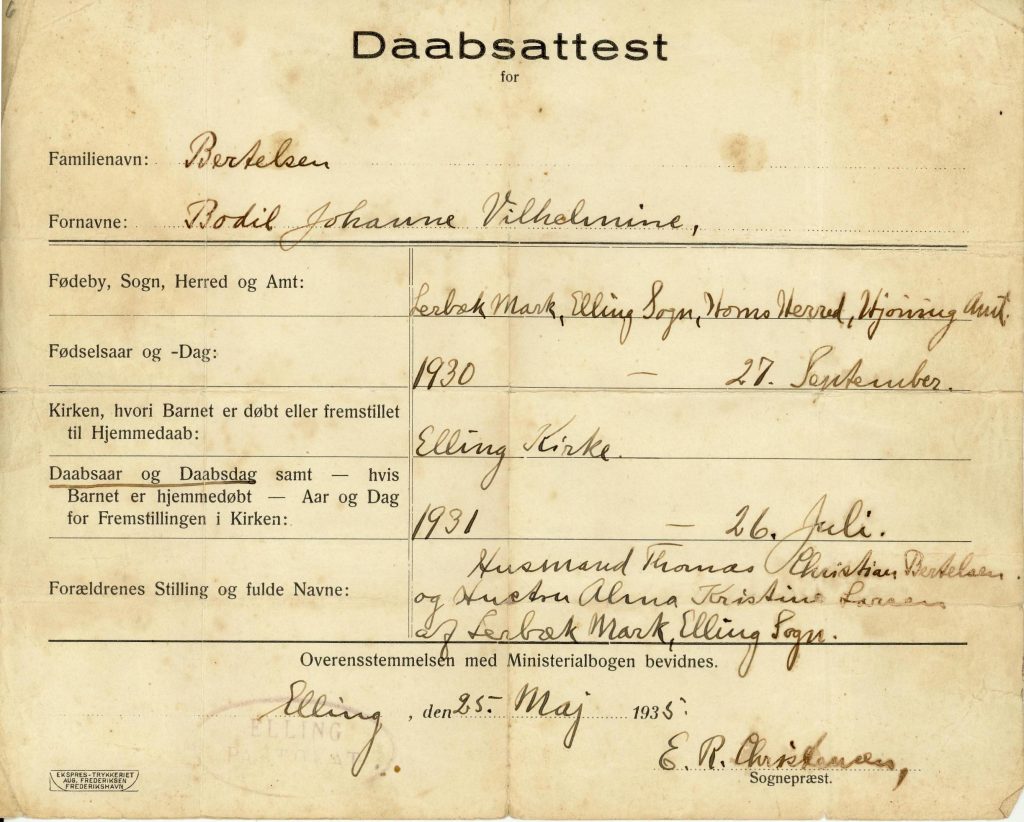 6
Daabsattest
for
Familienavn: Bertelsen
Fornavne: Bodil Johanne Vilhelmine,
Fødeby, Sogn, Herred og Amt:
Lerbæk Mark, Elling Sogn, Horns Herred, Hjørring Amt.
Fødselsaar og -Dag:
1930 — 27. September.
Kirken, hvori Barnet er døbt eller fremstillet
til Hjemmedaab:
Elling Kirke.
Daabsaar og Daabsdag samt — hvis
Barnet er hjemmedøbt — Aar og Dag
for Fremstillingen i Kirken:
1931 — 26. Juli.
Forældrenes Stilling og fulde Navne:
Husmand Thomas Christian Bertelsen.
og Hustru Alma Kristine Larsen
af Lerbæk Mark, Elling Sogn.
Overensstemmelsen med Ministerialbogen bevidnes.
Elling, den 25. Maj 1935.
ELLING
PASTORAT
E. R. Christensen,
Sognepræst.
EKSPRES-TRYKKERIET
AUG. FREDERIKSEN
FREDERIKSHAVN